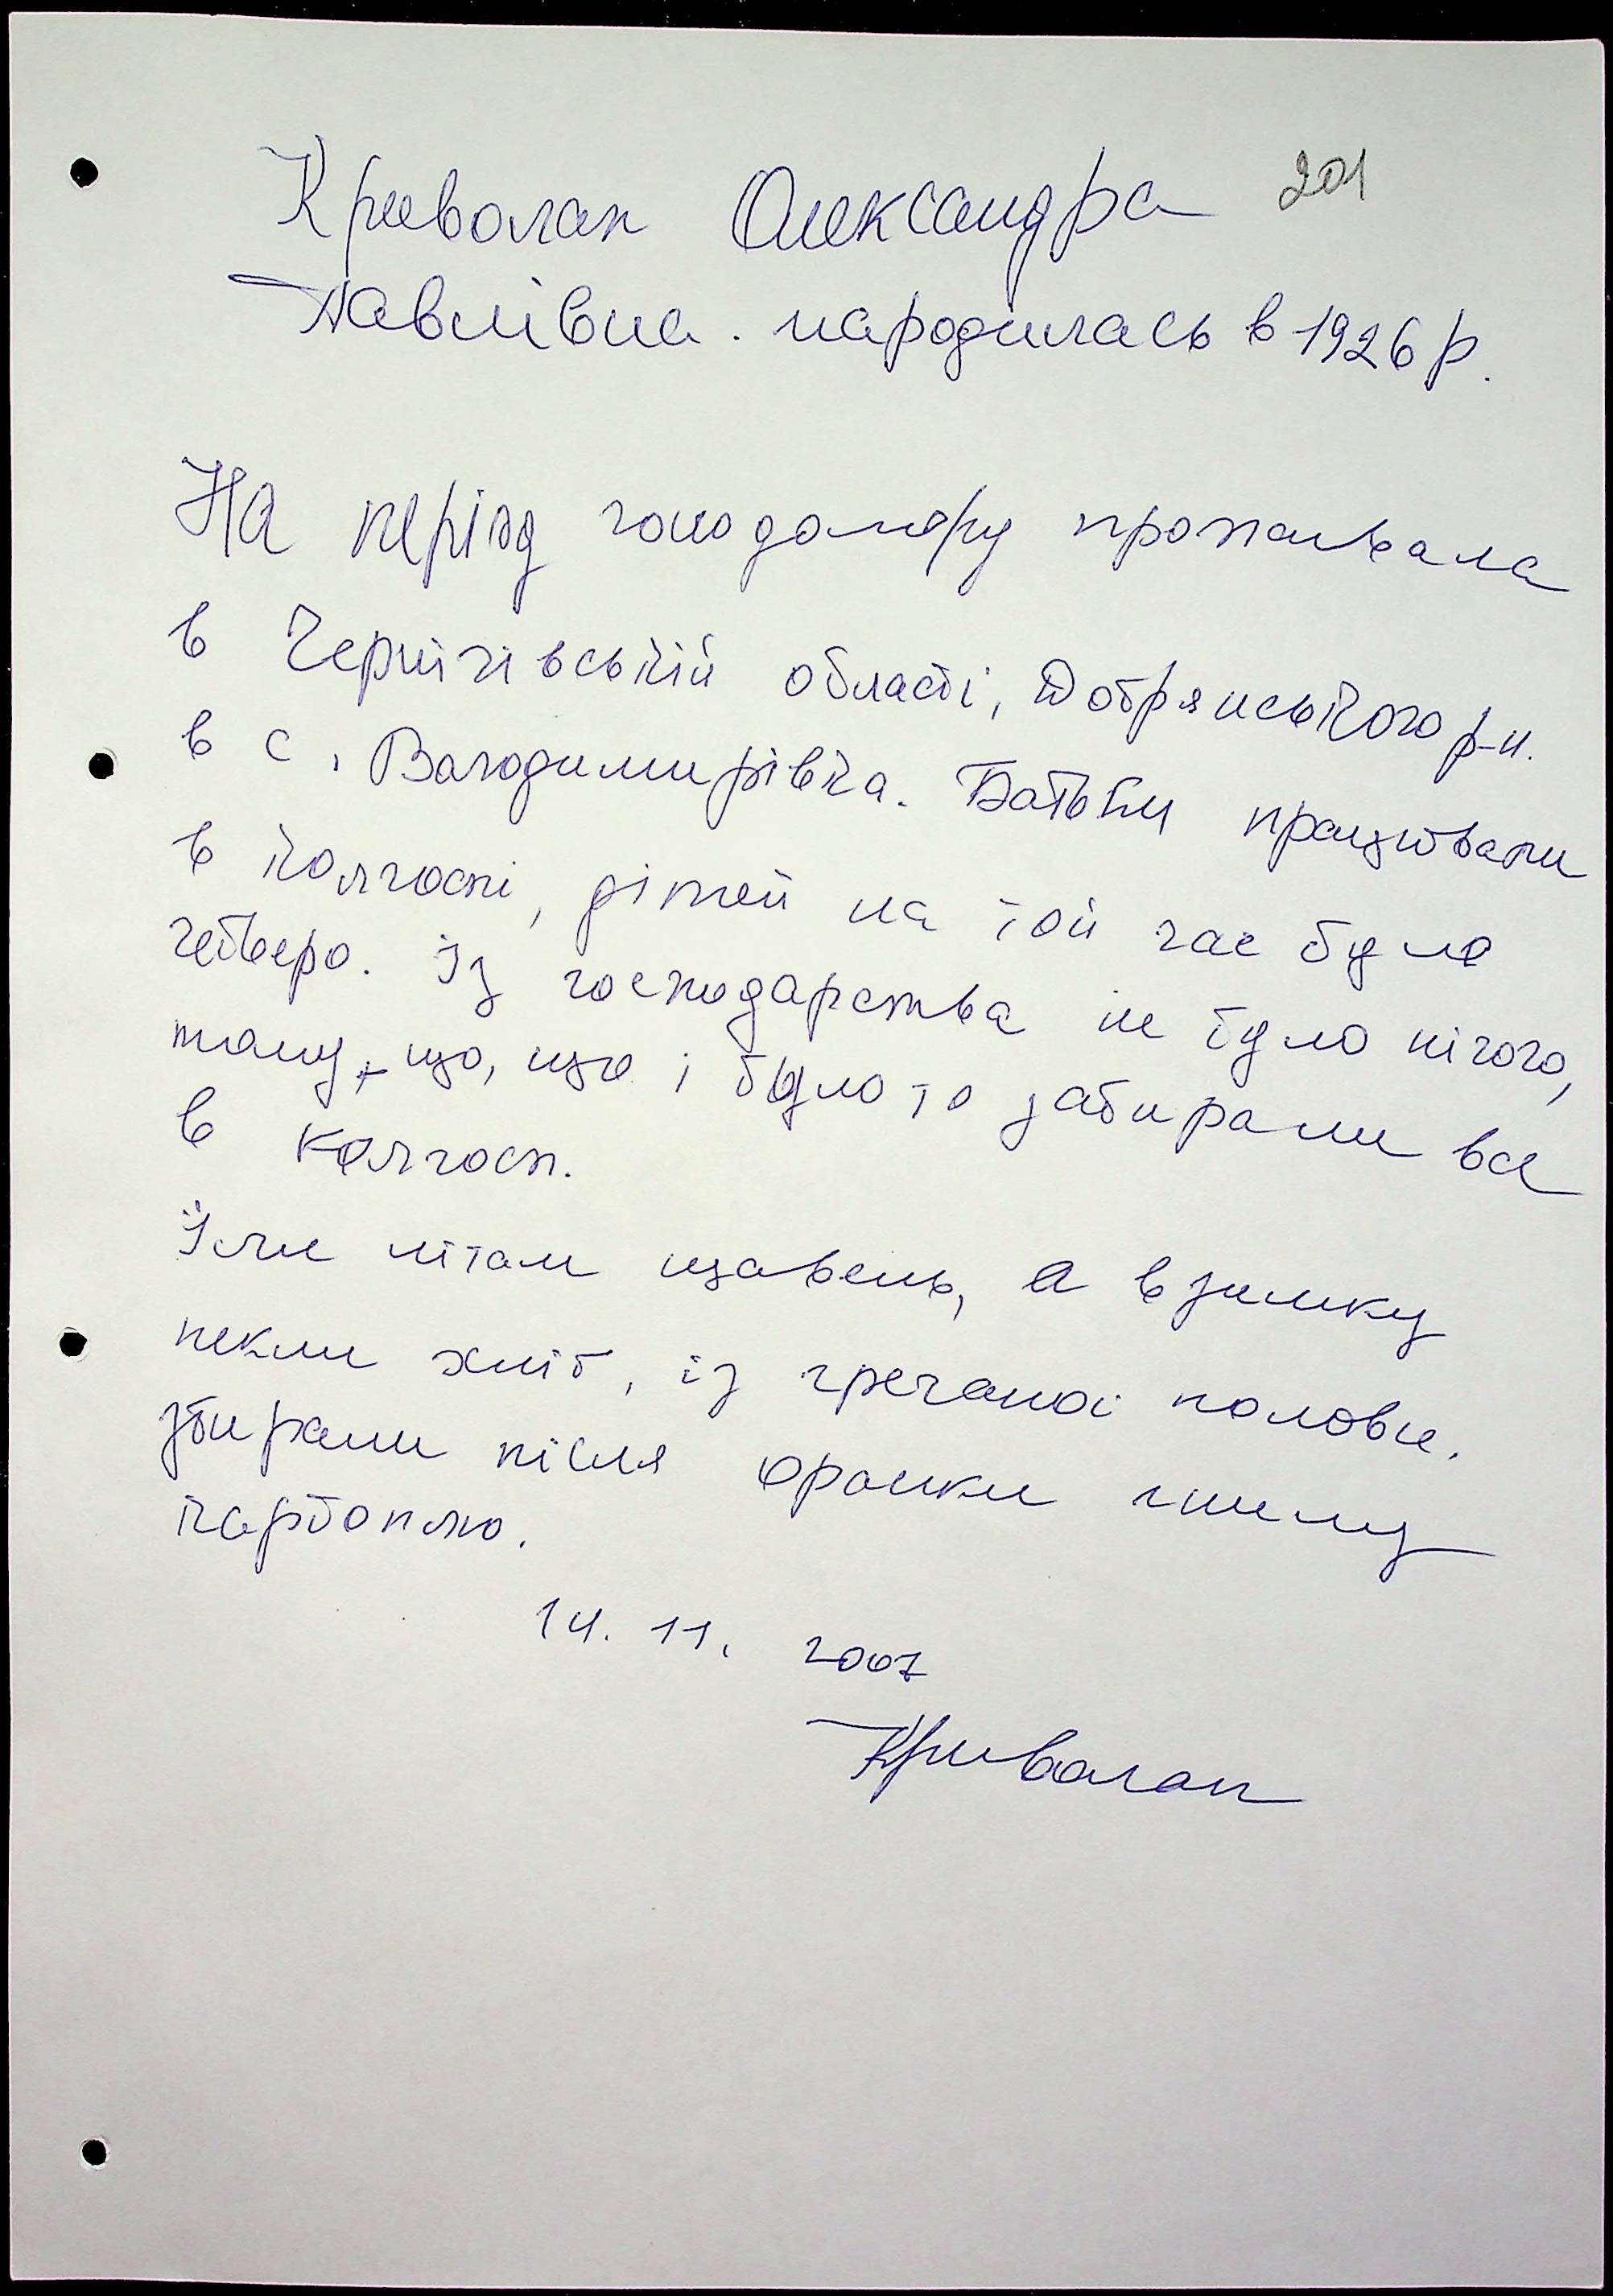 Криволап Олександра 201
Павлівна. народилась в 1926 р.
На період голодомору проживала
в Чернігівській області, Добрянського р-н.
в с. Володимирівка. Батьки працювали
в колгоспі, дітей на той час було
четверо. Із господарства не було нічого,
тому, що, що і було то забирали все
в колгосп.
Їли літом щавель, а взимку
пекли хліб, із гречаної полови.
збирали після оранки гнилу
картоплю.
14. 11. 2007
Криволап